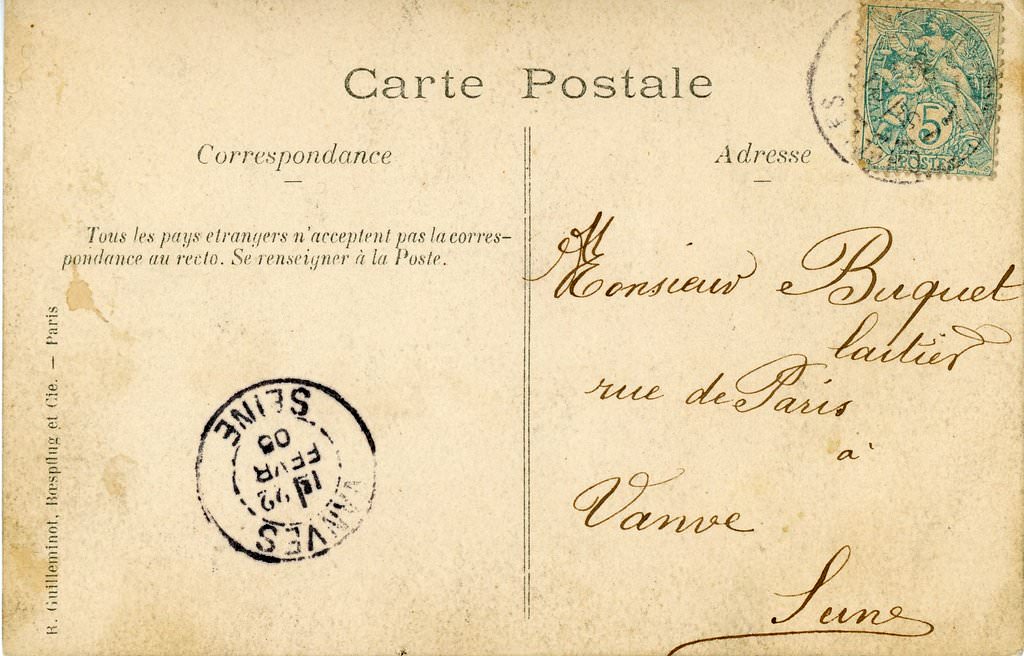 Carte Postale
Correspondance
Adresse
Tous les pays etrangers n'acceptent pas la corres-
pondance au recto. Se renseigner à la Poste.
R. Guilleminot, Bœspflug et Cie. — Paris
5
POSTES
Monsieur Buquet
laitier
rue de Paris
à
Vanve
Seine
VANVES
22
FEVR
05
SEINE